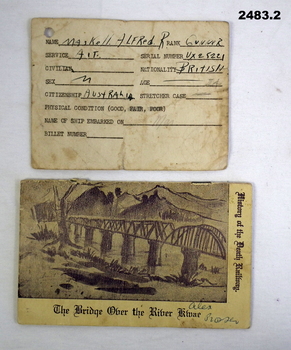 2483.2
NAME Maskell Alfred R RANK Gunner
SERVICE A.I.F. SERIAL NUMBER VX
CIVILIAN NATIONALITY BRITISH
SEX M AGE
CITIZENSHIP AUSTRALIA STRETCHER CASE
PHYSICAL CONDITION (GOOD, FAIR, POOR)
NAME OF SHIP EMBARKED ON
BILLET NUMBER
History of the Death Railway
The Bridge Over the River Kwae
Alex